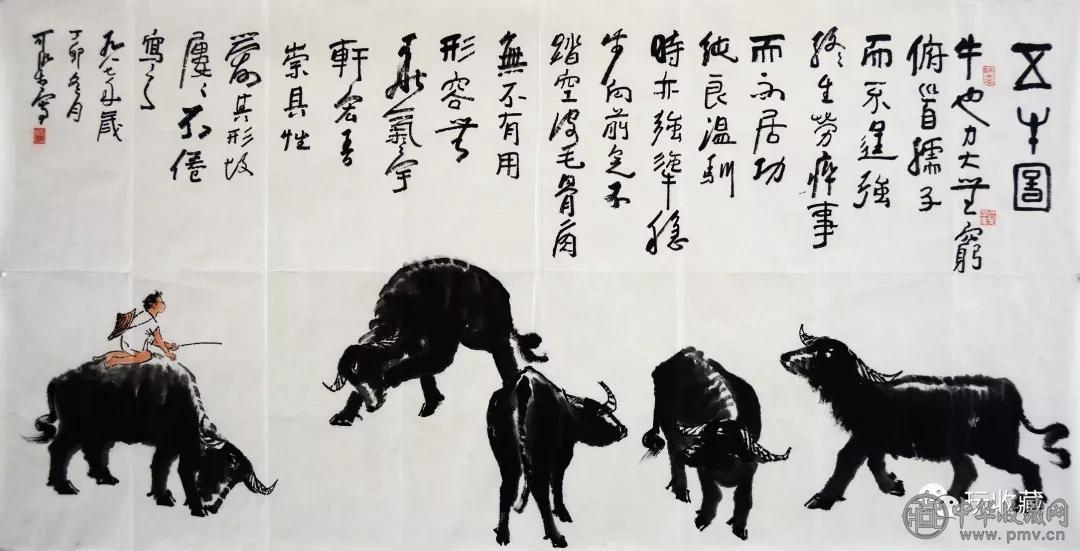 五牛圖
牛也力大無窮
俯首孺子
而不逞強
終生勞瘁事
而不居功
純良溫馴
時亦強犟穩
步向前足不
踏空皮毛骨角
無不有用
形容無
華氣宇
軒宏吾
崇其性
愛其形故
屢屢不倦
寫之
九八七年歲
丁卯冬月
可染
玩收藏
中华收藏网
www.pmv.cn